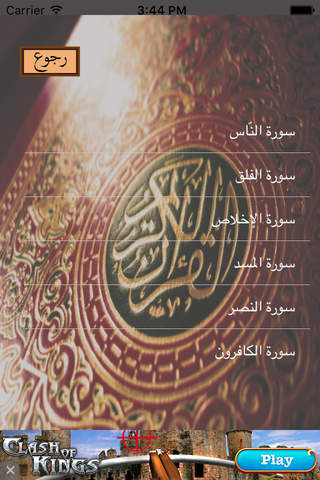 Carrier 3:44 PM
رجوع
سورة النّاس
سورة الفلق
سورة الإخلاص
سورة المسد
سورة النصر
سورة الكافرون
القرآن الكريم
CLASH OF KINGS
Play